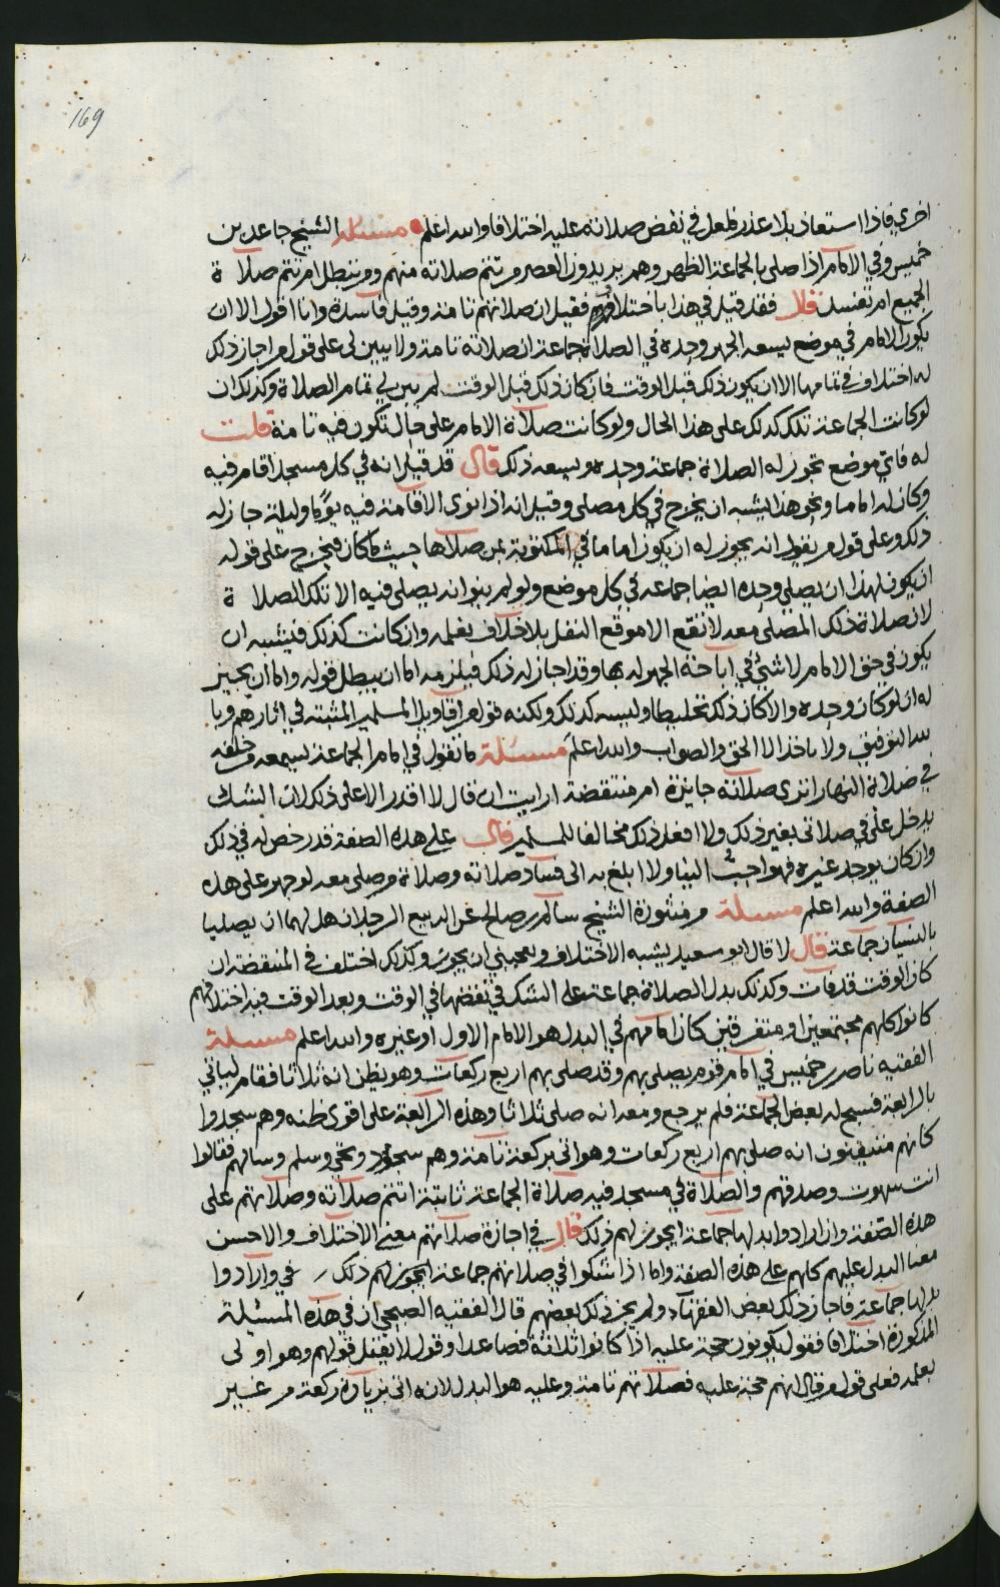 169
اخرى فاذا استعاذ بلا عذر فلعل في نقض صلاته عليه اختلافا والله اعلم مسئلة الشيخ جاعد بن
خميس وفي الامام اذا صلى بالجماعة الظهر وهم يريدون العصر من تتم صلاته منهم ومن تبطل ام تتم صلاة
الجميع ام تفسد قال فقد قيل في هذا باختلاف فقيل ان صلاتهم تامة وقيل فاسدة وانا اقول الا ان
يكون الامام في موضع يسعه الجهر وحده في الصلاة جماعة ان صلاته تامة ولا يبين لي على قول من اجاز ذلك
له اختلاف في تمامها الا ان يكون ذلك قبل الوقت فان كان ذلك قبل الوقت لم يبن لي تمام الصلاة وكذلك ان
لو كانت الجماعة تلك كذلك على هذا الحال ولو كانت صلاة الامام على حال تكون فيه تامة قلت
له فاي موضع تجوز له الصلاة جماعة وحده ويسعه ذلك قال قد قيل انه في كل مسجد اقام فيه
وكان له اماما ونحو هذا يشبه ان يخرج في كل مصلى وقيل انه اذا نوى الاقامة فيه يوما وليلة جاز له
ذلك وعلى قول من يقول انه يجوز له ان يكون اماما في المكتوبة بمن صلاها حيث ما كان فيخرج على قوله
ان يكون لهذا ان يصلي وحده ايضا جماعة في كل موضع ولو لم ينو انه يصلي فيه الا تلك الصلاة
لان صلاة ذلك المصلى معه لا تقع الا موقع النفل بلا خلاف بعلمه وان كانت كذلك فيشبه ان
يكون في حق الامام لا شيء في اباحة الجهر له بها وقد اجاز له ذلك فيلزمه اما ان يبطل قوله واما ان يجيز
له ان لو كان وحده والا كان ذلك تخليطا وليسه كذلك ولكنه قول من اقاويل المسلمين المثبتة في اثارهم وبا
لله التوفيق ولا ياخذ الا الحق والصواب والله اعلم مسئلة ما تقول في امام الجماعة يسمعه من خلفه
في صلاة النهار اترى صلاته جايزة ام منتقضة ارايت ان قال لا اقدر الا على ذلك لان الشك
يدخل علي في صلاتي بغير ذلك ولا افعل ذلك مخالفا للمسلمين قال على هذه الصفة قد رخص له في ذلك
وان كان يوجد غيره فهو احب الينا ولا ابلغ به الى فساد صلاته وصلاة من صلى معه لو جهر على هذه
الصفة والله اعلم مسئلة من منثورة الشيخ سالم بن صالح عن الربيع الرجلان هل لهما ان يصليا
بالنسيان جماعة قال لا قال ابو سعيد يشبه الاختلاف ويعجبني ان يجوز وكذلك اختلف في المنتقضة ان
كان الوقت قد فات وكذلك بدل الصلاة جماعة على الشك في نقضها في الوقت وبعد الوقت فيه اختلاف
كانوا كلهم مجتمعين او متفرقين كان امامهم في البدل هو الامام الاول او غيره والله اعلم مسئلة
الفقيه ناصر بن خميس في امام قوم يصلي بهم وقد صلى بهم اربع ركعات وهو يظن انه ثلاثا فقام لياتي
بالرابعة فسبح له بعض الجماعة فلم يرجع ومعه انه صلى ثلاثا وهذه الرابعة على اقوى ظنه وهم سجدوا
كانهم متيقنون انه صلى بهم اربع ركعات وهو اتى بركعة تامة وهم سجود وتحيى وسلم وسالهم فقالوا
انت سهوت وصدقهم والصلاة في مسجد فيه صلاة الجماعة ثابتة اتتم صلاته وصلاتهم على
هذه الصفة وان ارادوا بدلها جماعة ايجوز لهم ذلك قال في اجازة صلاتهم معنى الاختلاف والاحسن
معنا البدل عليهم كلهم على هذه الصفة واما اذا شكوا في صلاتهم جماعة ايجوز لهم ذلك في وارادوا
بدلها جماعة فاجاز ذلك بعض الفقهاء ولم يجز ذلك بعضهم قال الفقيه الصبحي ان في هذه المسئلة
المذكورة اختلافا فقول يكونون حجة عليه اذا كانوا ثلاثة فصاعدا وقول لا يقبل قولهم وهو اولى
بعلمه فعلى قول من قال انهم حجة عليه فصلاتهم تامة وعليه هو البدل لانه اتى بزيادة ركعة من غير